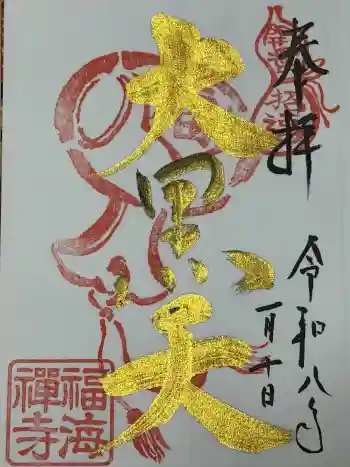 奉拝
令和八年
一月十日
大黒天
開運招福
福海禅寺